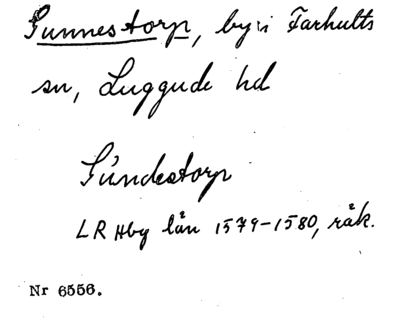 Gunnestorp, by i Farhults
sn, Luggude hd
Gúndestorp
LR Hby län 1579-1580, räk.
Nr 6556.